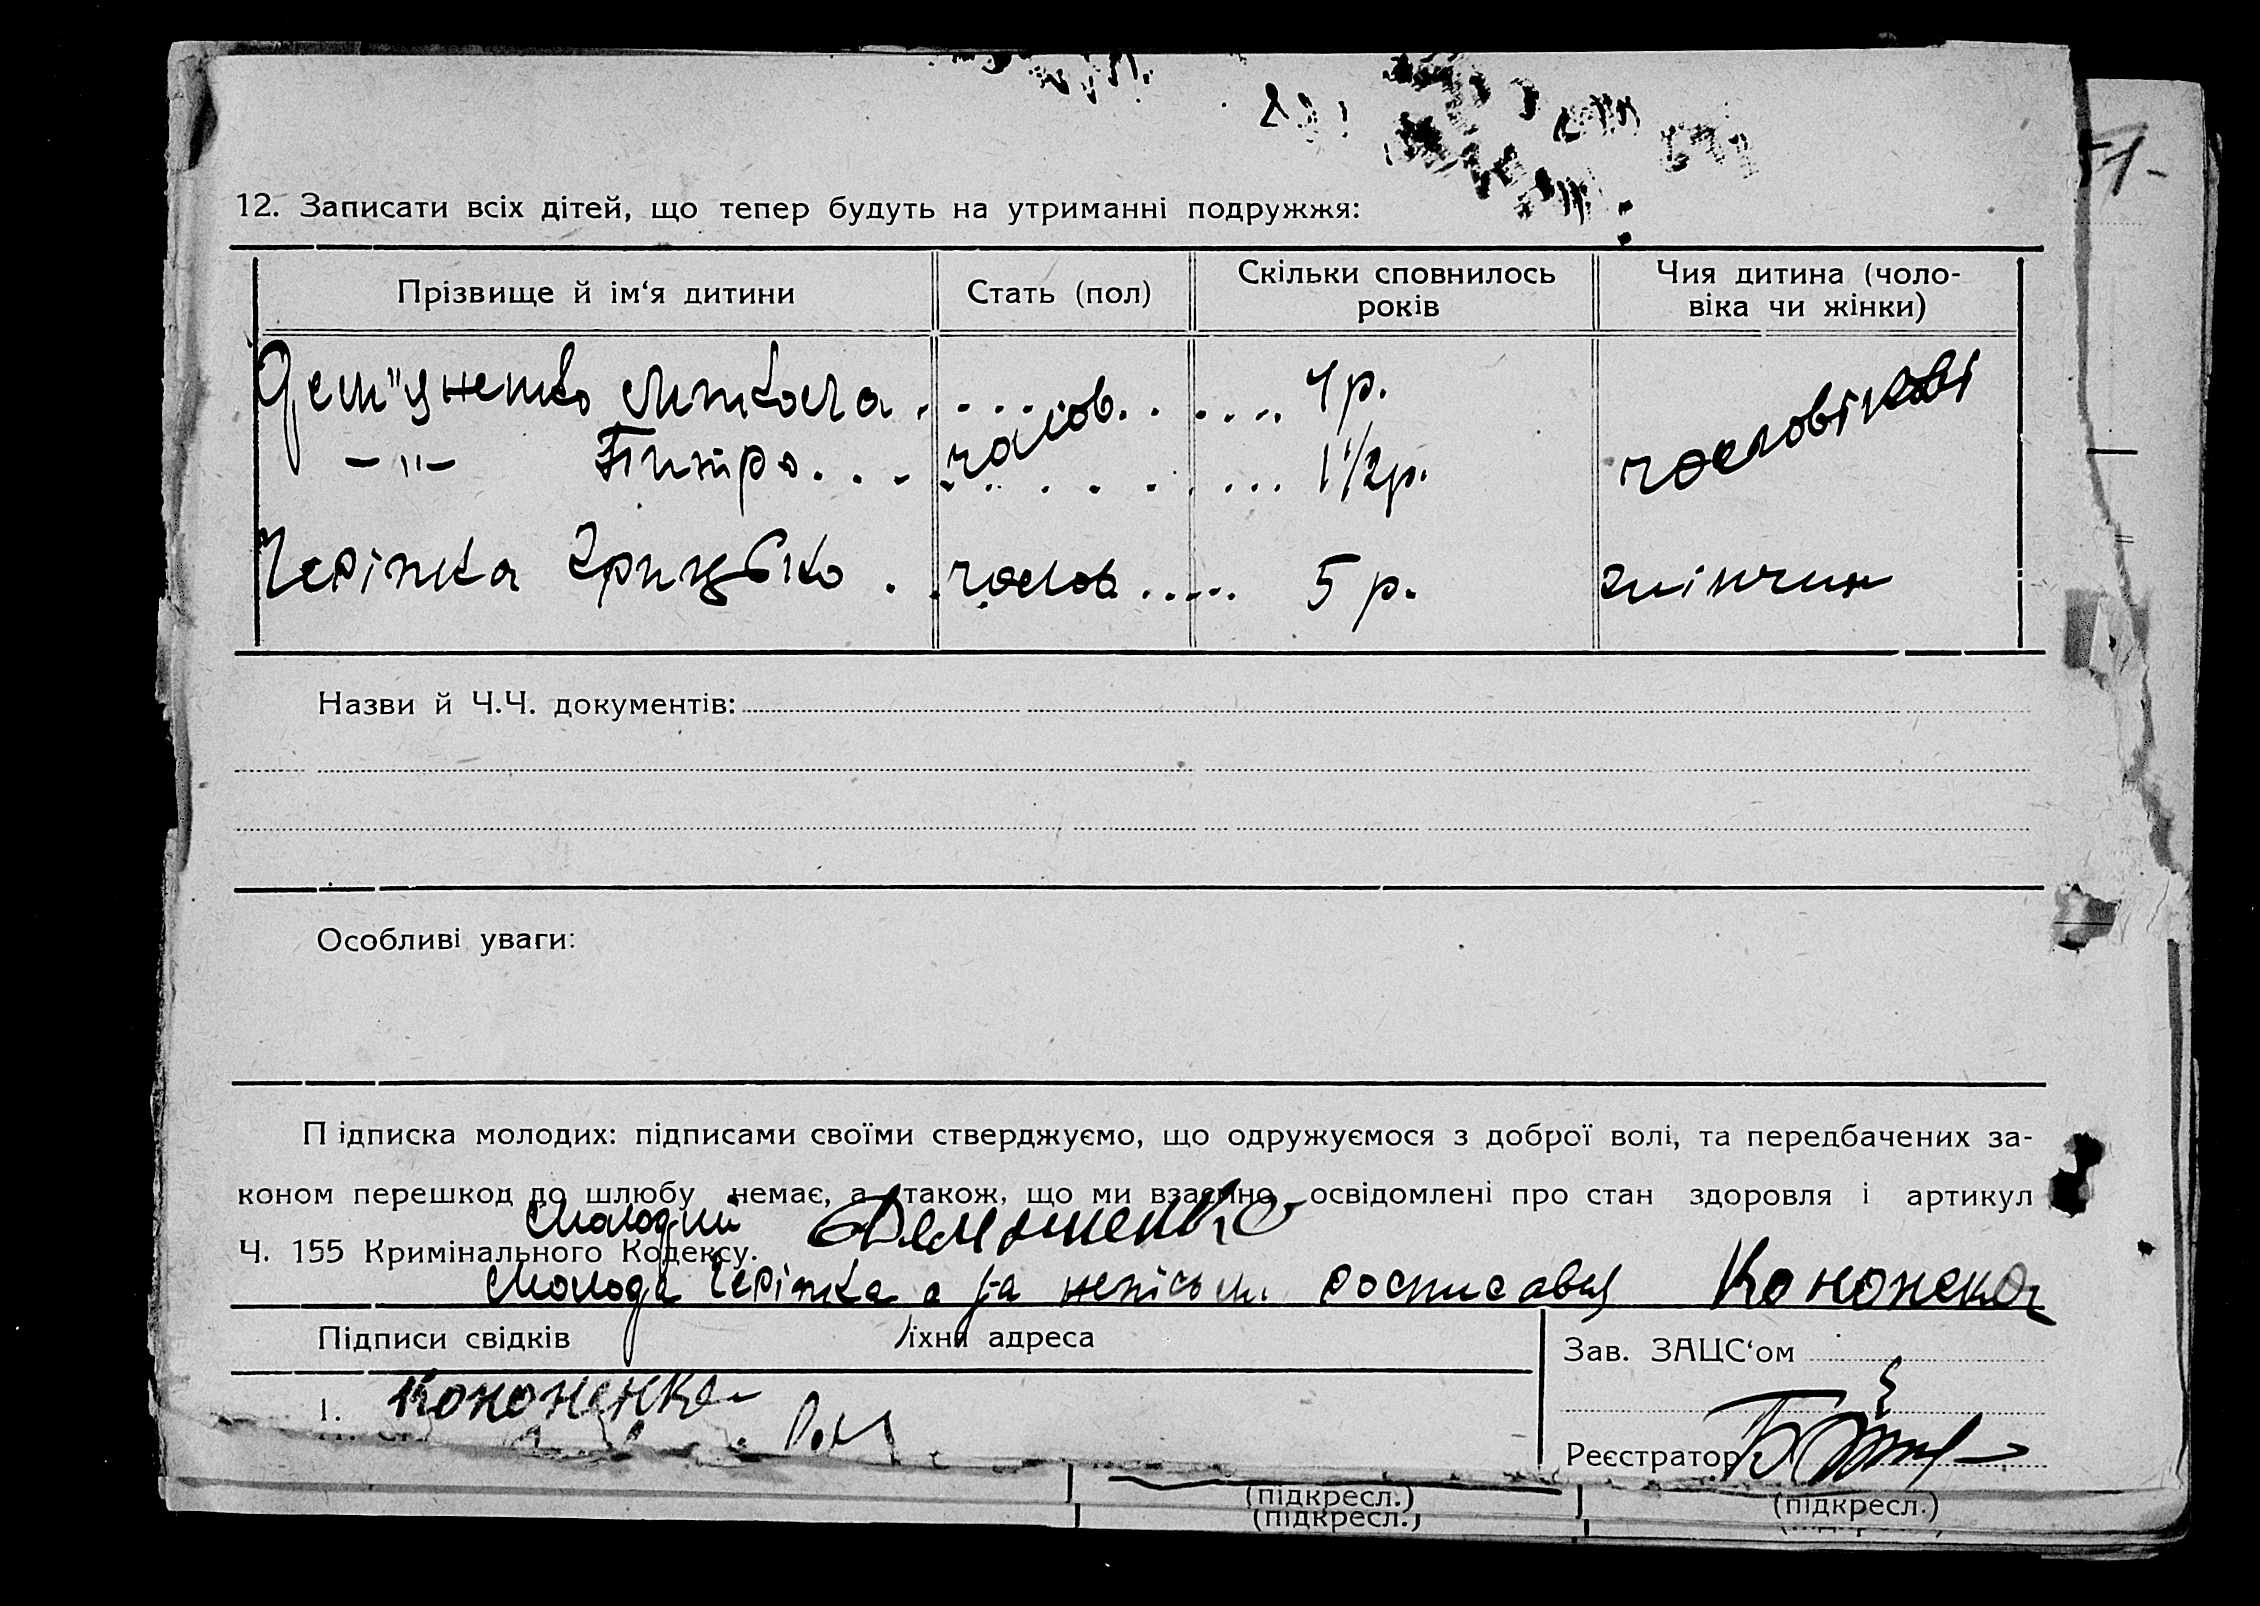 12. Записати всіх дітей, що тепер будуть на утриманні подружжя:
Прізвище й ім‘я дитини Стать (пол) Скільки сповнилось років Чия дитина (чоловіка чи жінки)
Дем"яненко Микола чолов. 4 р. чоловікові
-"- Питро 1 1/2 р.
Черінка Грицько чолов 5 р. жінчин
Назви й Ч.Ч. документів:
Особливі уваги:
Підписка молодих: підписами своїми стверджуємо, що одружуємося з доброї волі, та передбачених за-
коном перешкод до шлюбу немає, а також, що ми взаємно освідомлені про стан здоровля і артикул
Молодий Демяненко
Ч. 155 Кримінального Кодексу.
Молода Черінка а за неписьм. росписався Кононенко
Підписи свідків їхня адреса
Зав. ЗАЦС‘ом
1. Кононенко
Реєстратор
(підкресл.) (підкресл.)
(підкресл.)